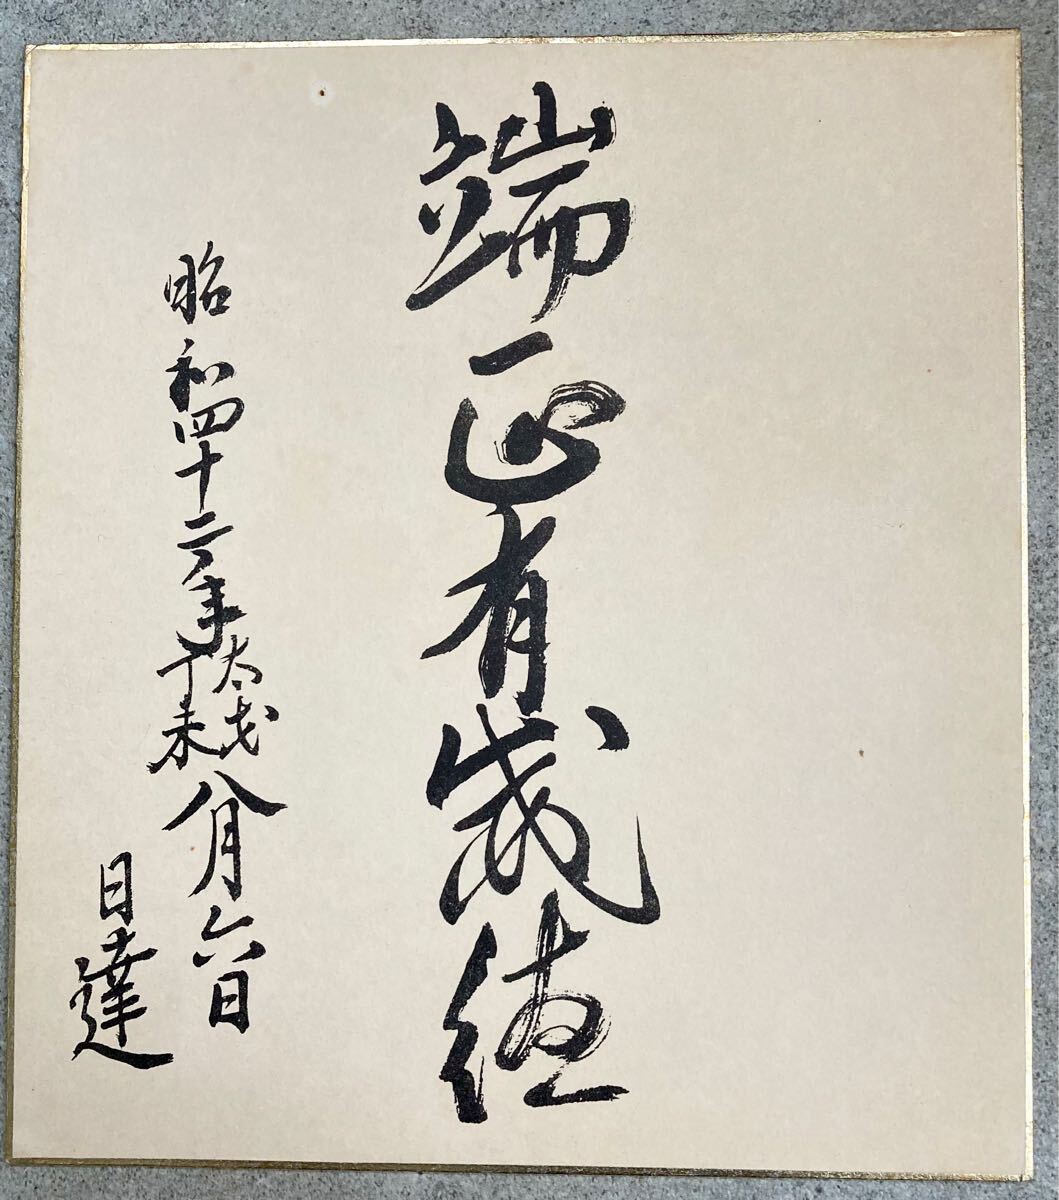 端正有威徳
昭和四十二年太才丁未八月六日
日達